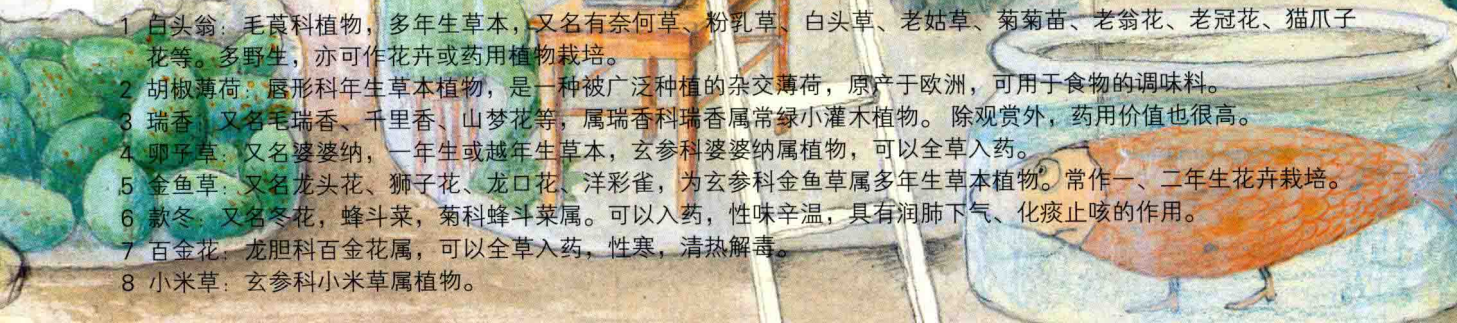 1 白头翁：毛茛科植物，多年生草本，又名有奈何草、粉乳草、白头草、老姑草、菊菊苗、老翁花、老冠花、猫爪子
花等。多野生，亦可作花卉或药用植物栽培。
2 胡椒薄荷：唇形科年生草本植物，是一种被广泛种植的杂交薄荷，原产于欧洲，可用于食物的调味料。
3 瑞香：又名毛瑞香、千里香、山梦花等，属瑞香科瑞香属常绿小灌木植物。除观赏外，药用价值也很高。
4 卵子草：又名婆婆纳，一年生或越年生草本，玄参科婆婆纳属植物，可以全草入药。
5 金鱼草：又名龙头花、狮子花、龙口花、洋彩雀，为玄参科金鱼草属多年生草本植物。常作一、二年生花卉栽培。
6 款冬：又名冬花，蜂斗菜，菊科蜂斗菜属。可以入药，性味辛温，具有润肺下气、化痰止咳的作用。
7 百金花：龙胆科百金花属，可以全草入药，性寒，清热解毒。
8 小米草：玄参科小米草属植物。